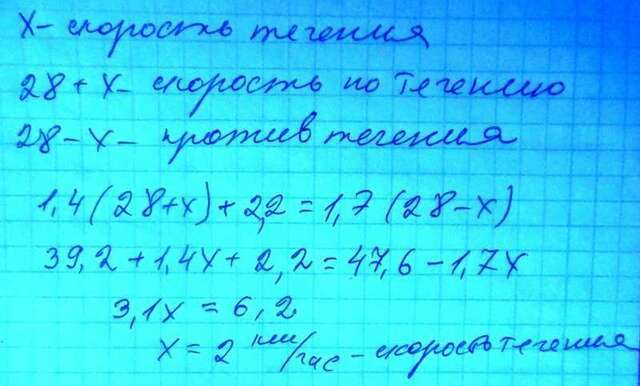 X - скорость течения
28 + X - скорость по течению
28 - X - против течения
1,4 (28+x) + 2,2 = 1,7 (28-x)
39,2 + 1,4x + 2,2 = 47,6 - 1,7x
3,1x = 6,2
x = 2 км/час - скорость течения